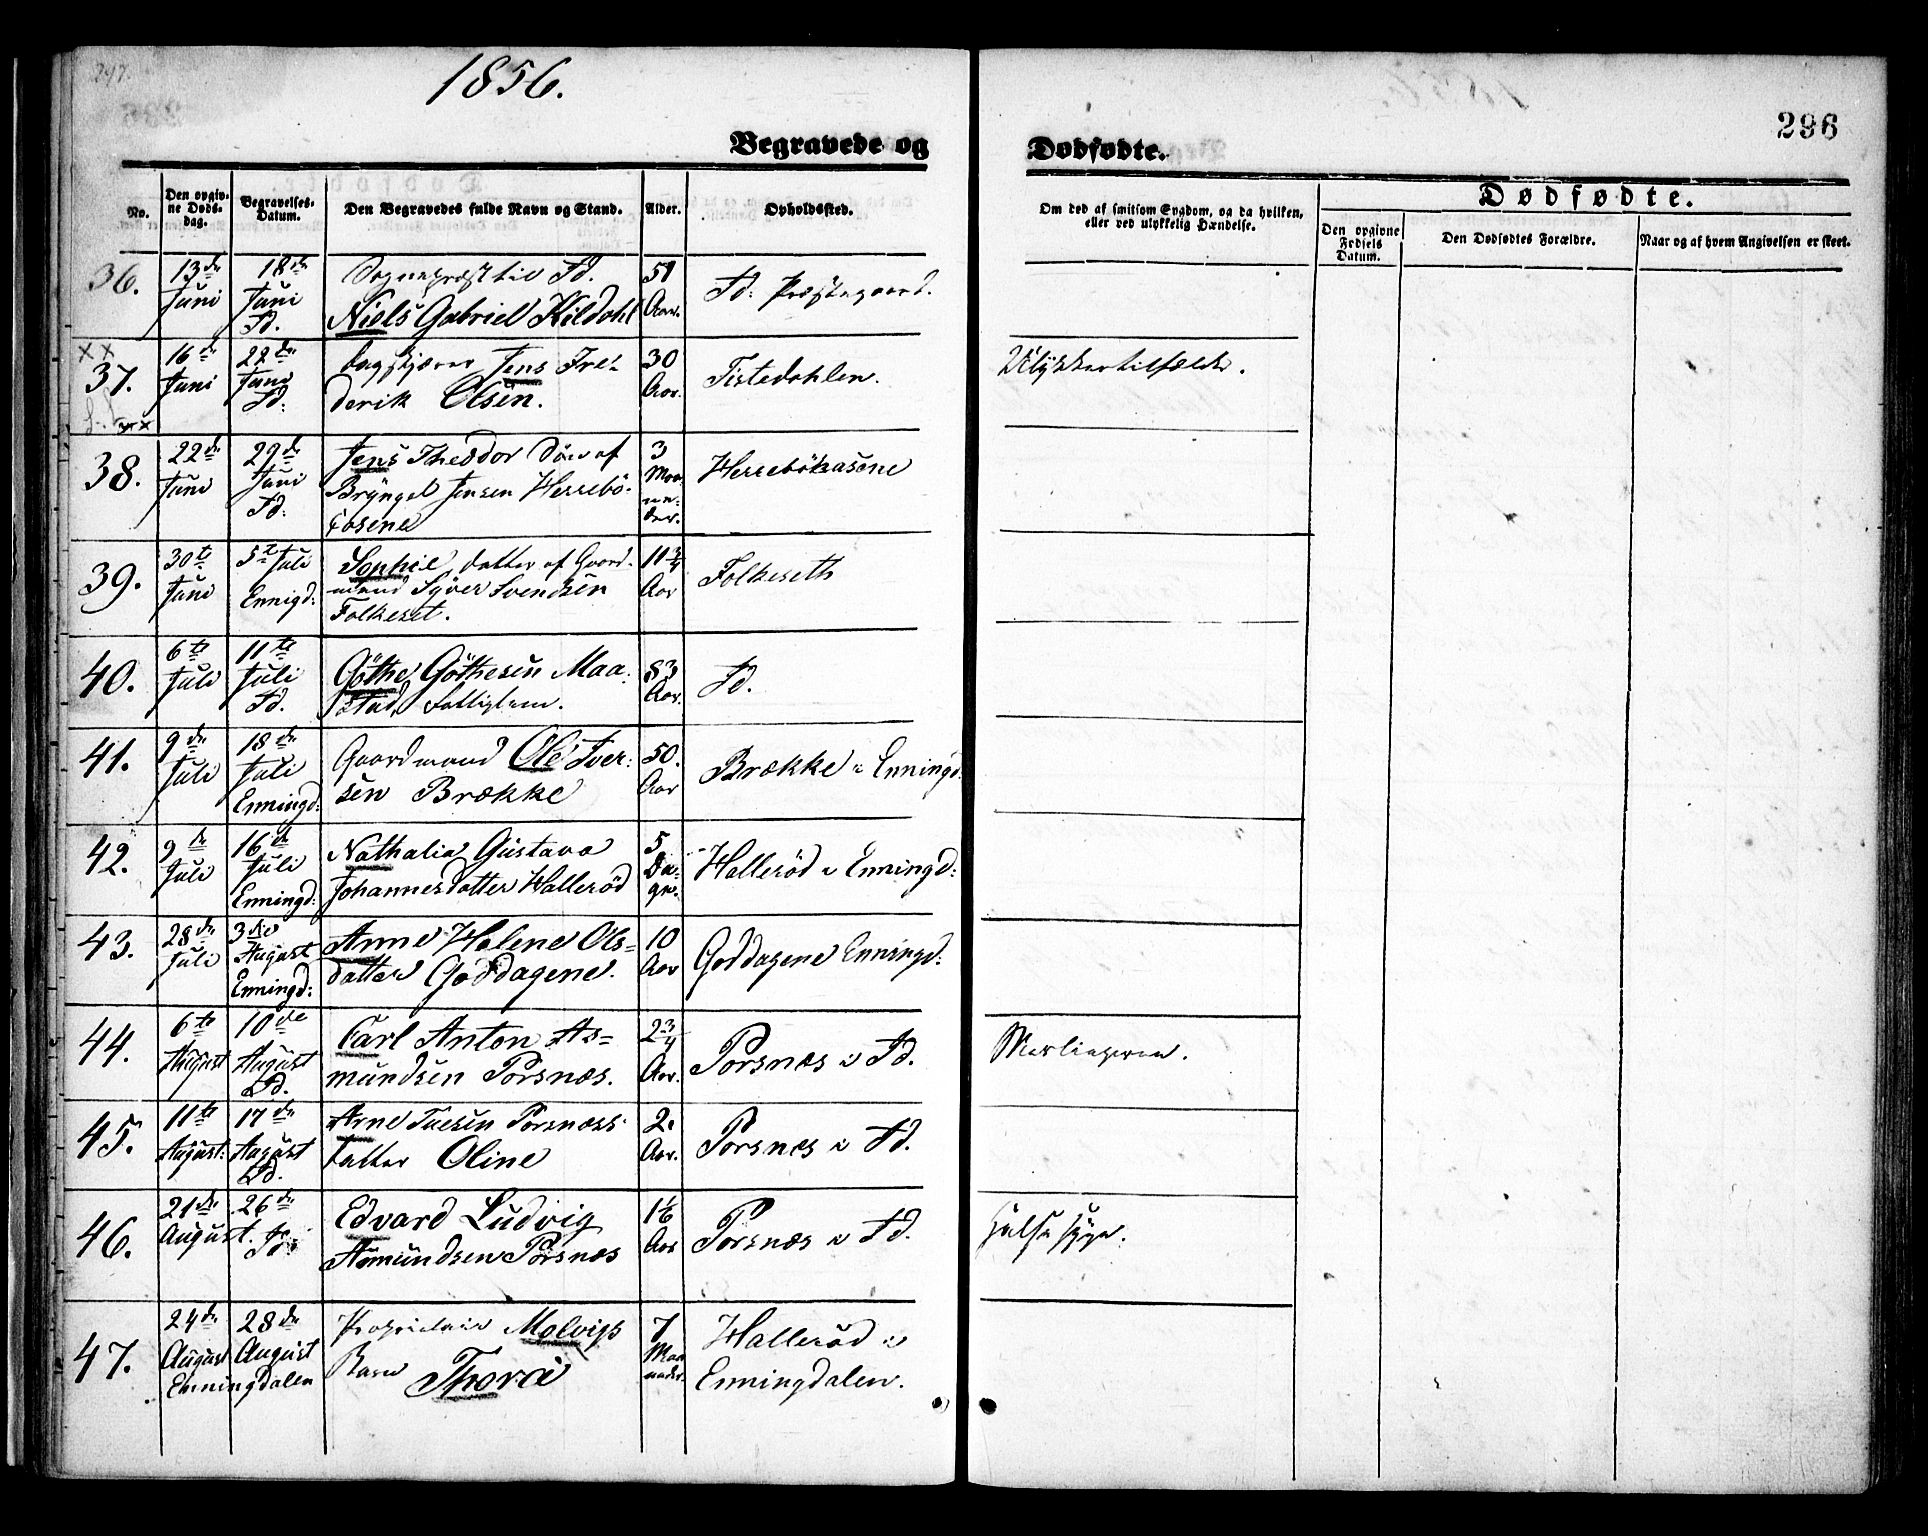 297.
1856.
296
Begravede og
Dødfødte.
No.
Den opgivne Døds-dag.
Begravelses-Datum.
Den Begravedes fulde Navn og Stand.
Alder.
Opholdssted.
Om død af smitsom Sygdom, og da hvilken, eller ved ulykkelig Hændelse.
Dødfødte.
Den opgivne Fødsels Datum.
Den Dødfødtes Forældre.
Naar og af hvem Angivelsen er skeet.
36. 13de Juni 18de Juni Id.
Sognepræst til Id.
Niels Gabriel Kildahl
51 Aar. Id: Præstegaard.
xx
37. 16de Juni 22de Juni Id:
Jens Fre-
derik Olsen.
30 Aar. Tistedahlen.
Ulykkestilfælde.
38. 22de Juni 29de Juni Id:
Jens Theodor Søn af
Bryngel Jensen Herrebö-
casene
3 Maaneder. Herrebökasene
39. 30te Juni 5te Juli Ennigd:
Sophie, datter af Gaard-
mand Syver Svendsen
Folkeset.
11 3/4 Aar Folkeseth
40. 6te Juli 11te Juli Id.
Göthe Göthesen Maa-
stad, Fattiglem.
83 Aar. Id.
41. 9de Juli 18de Juli Enningd:
Gaardmand Ole Iver-
sen Brække
50. Aar Brække i Enningd.
42. 9de Juli 16de Juli Enningd:
Nathalia Gustava
Johannesdatter Halleröd
5 Dage. Halleröd i Enningd:
43. 28de Juli 3die August Enningd:
Anne Helene Ols-
datter Goddagene.
10 Aar Goddagene Enningd:
44. 6te August 10de August Id.
Carl Anton As-
mundsen Porsnæs.
2 3/4 Aar. Porsnæs i Id.
Mæslingerne.
45. 11te August: 17de August Id.
Arne Tuesen Porsnæss
datter Oline
2. Aar. Porsnæs i Id.
46. 21de August 26de t. Id:
Edvard Ludvig
Asmundsen Porsnæs
1 1/6 Aar Porsnæs i Id.
Halsesyge.
47. 24de August 28de August
Enningdalen
Proprietair Molvigs
Barn Thora
7 Maaneder. Halleröd i
Enningdalen.